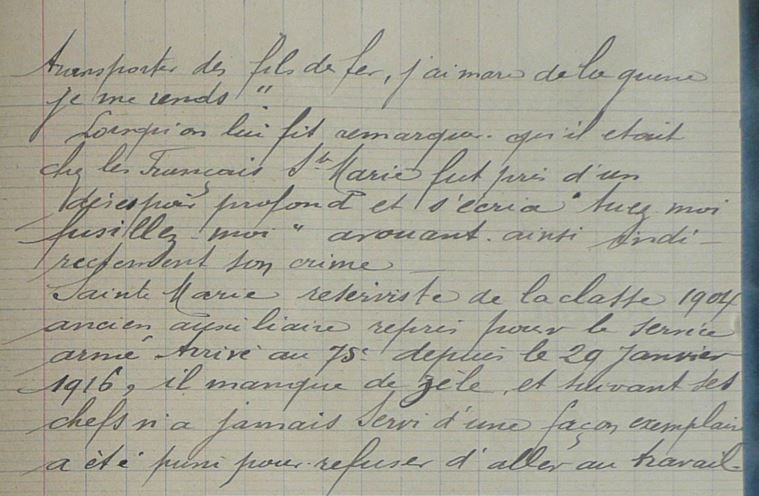 transporter des fils de fer, j'ai marre de la guerre
je me rends "
Lorsqu'on lui fit remarquer qu'il etait
chez les Français Ste Marie fut pris d'un
désespoir profond et s'écria " tuez moi
fusillez-moi " avouant ainsi indi-
rectement son crime
Sainte Marie reserviste de la classe 1904
ancien auxiliaire repris pour le service
armé Arrivé au 75e depuis le 29 Janvier
1916, il manque de zèle, et suivant ses
chefs n'a jamais servi d'une façon exemplaire
a été puni pour refuser d'aller au travail.